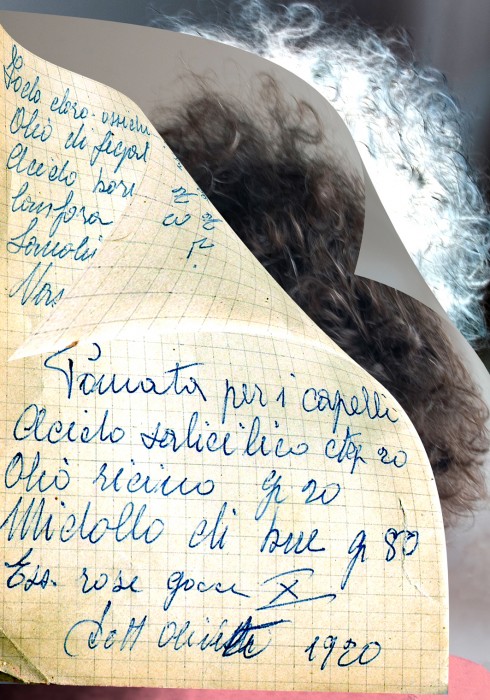 Olio di fegat
Acido bori
Canfora
Lanoli
Vas
Pomata per i capelli
Acido salicilico ctgr 20
Olio ricino gr 20
Midollo di bue gr 80
Ess. rose gocce X
Dott 1920